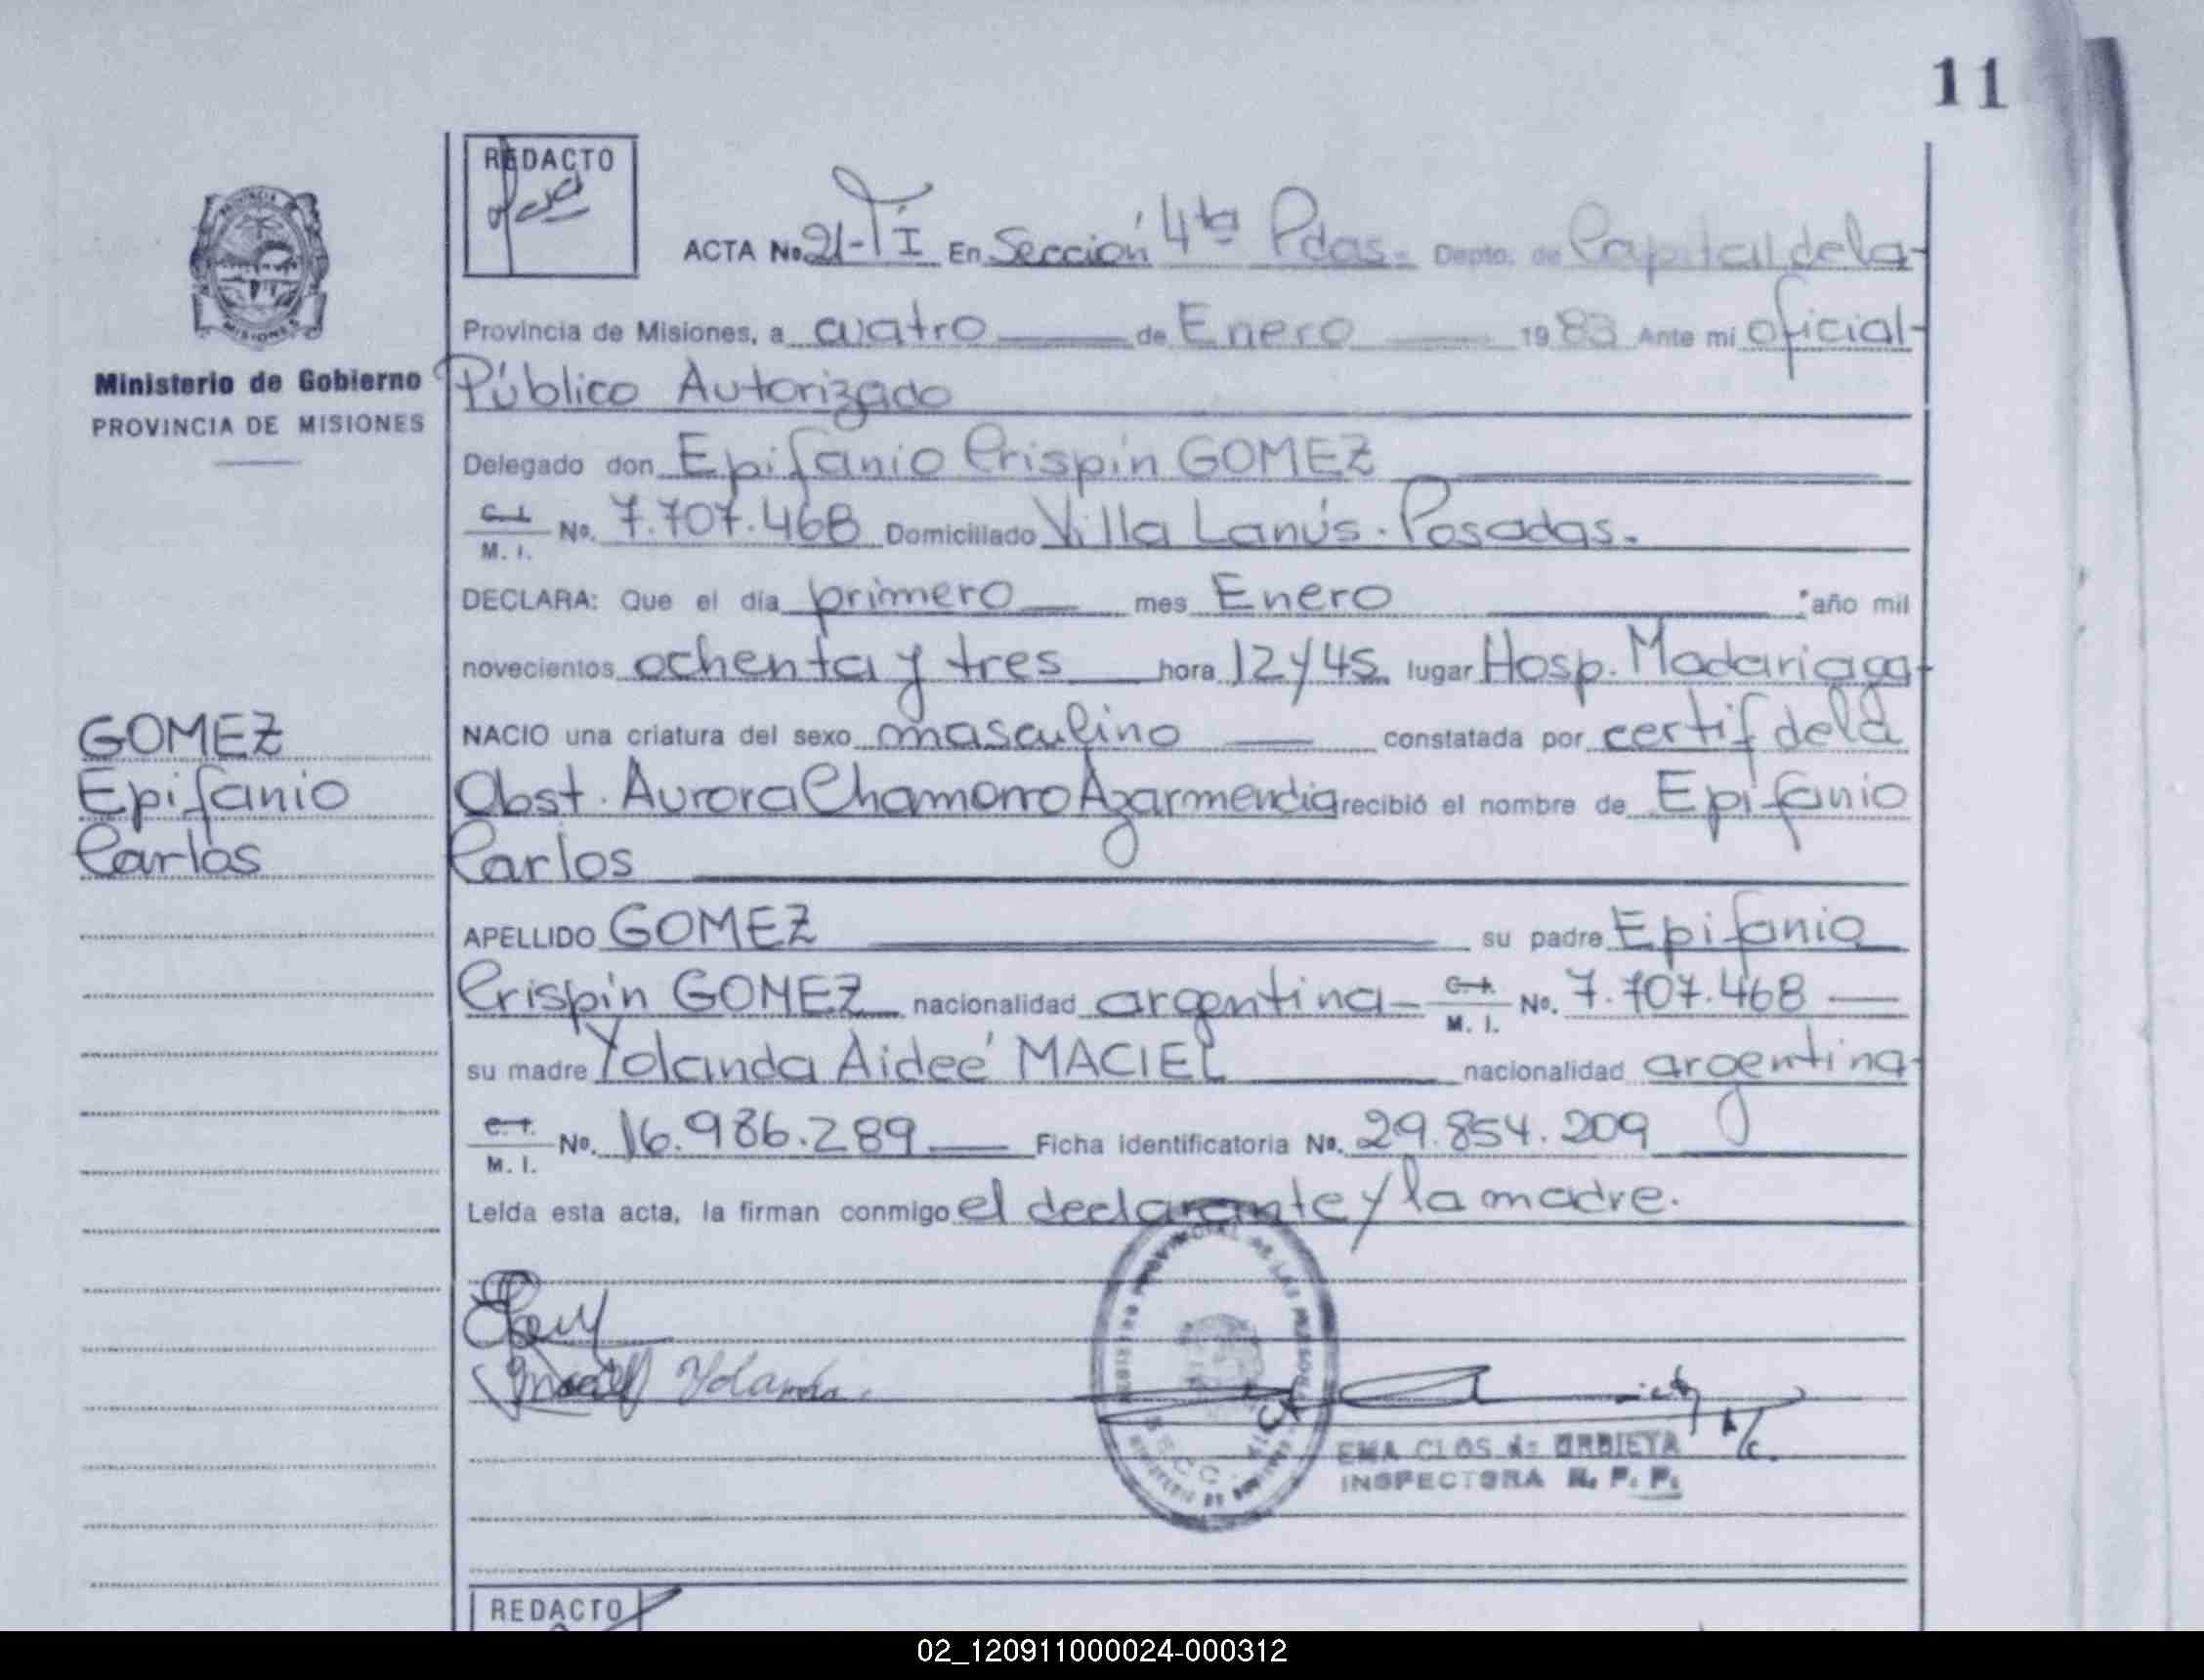 11
REDACTO
ACTA No. 21-TI En Sección 4ta Pdas. Depto. de Capital de la
Provincia de Misiones, a cuatro de Enero 1983 Ante mi oficial
Ministerio de Gobierno
PROVINCIA DE MISIONES
Público Autorizado
Delegado don Epifanio Crispín GOMEZ
C. I. M. I. No. 7.707.468 Domiciliado Villa Lanús - Posadas.
DECLARA: Que el día primero mes Enero año mil
novecientos ochenta y tres hora 12 y 45 lugar Hosp. Madariaga
GOMEZ
Epifanio
Carlos
NACIO una criatura del sexo masculino constatada por certif de la
Obst. Aurora Chamorro Azarmendia recibió el nombre de Epifanio
Carlos
APELLIDO GOMEZ su padre Epifanio
Crispín GOMEZ nacionalidad argentina C. I. M. I. No. 7.707.468
su madre Yolanda Aideé MACIEL nacionalidad argentina
C. I. M. I. No. 16.986.289 Ficha identificatoria No. 29.854.209
Leída esta acta, la firman conmigo el declarante y la madre.
Yolanda
EMA CLOS de URBIETA
INSPECTORA R. P. P.
REDACTO
02_120911000024-000312